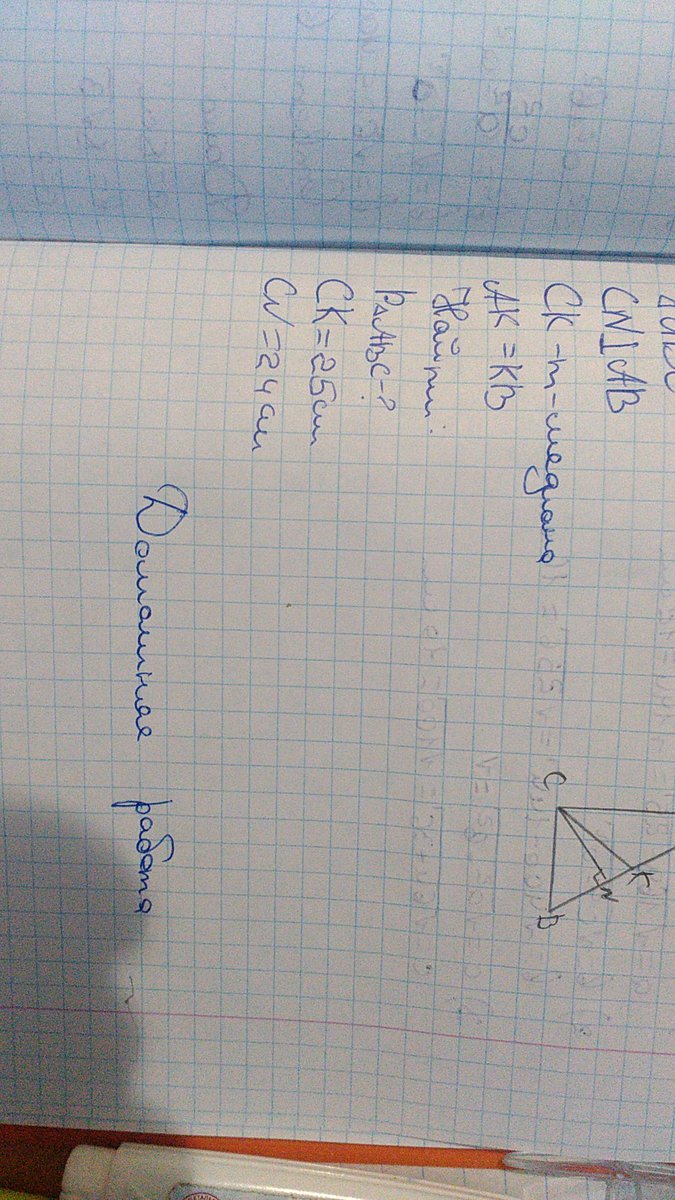 CN⊥AB
CK-m-медиана
AK=KB
Найти:
P△ABC-?
CK=25см
CN=24см
C
K
N
B
Домашняя работа